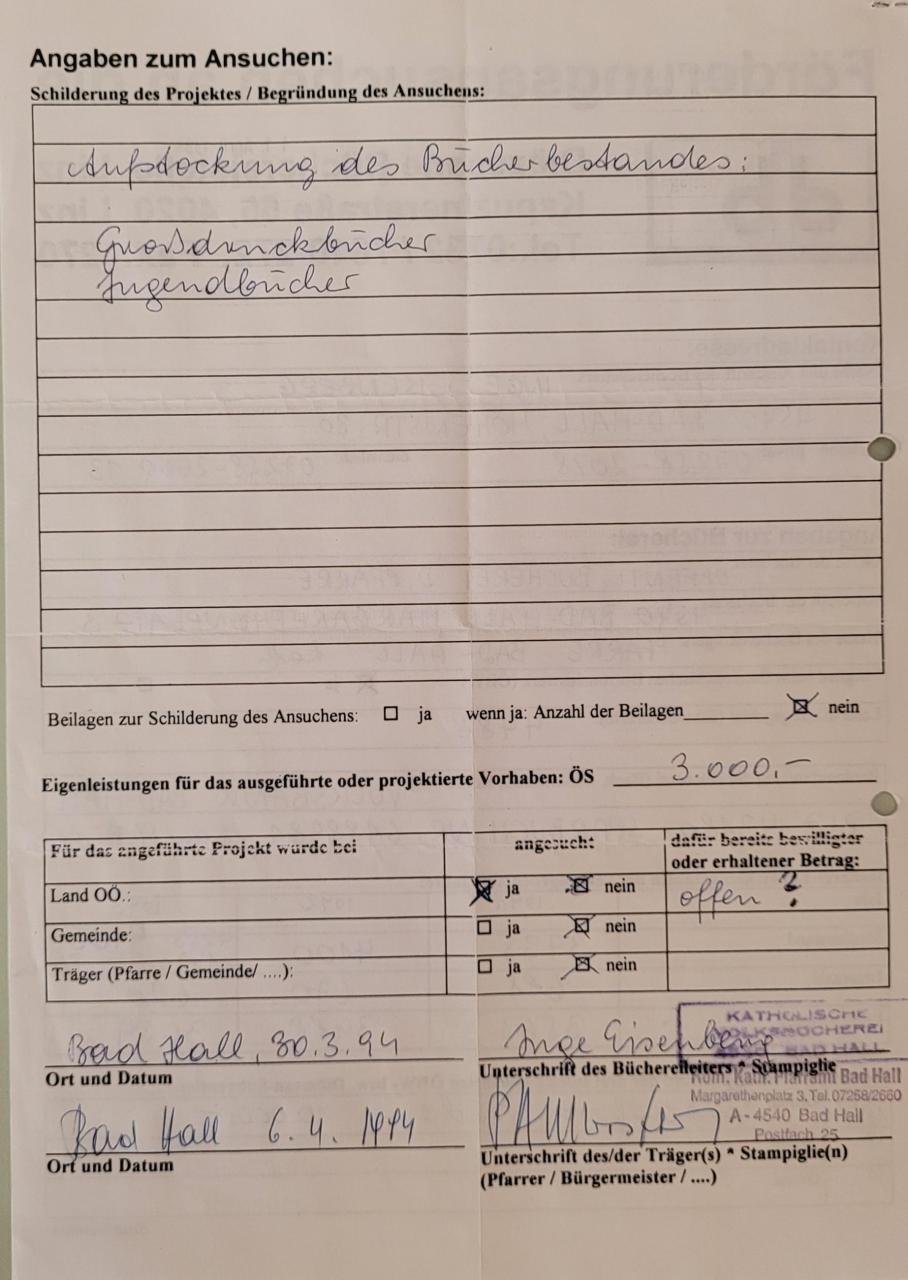 Angaben zum Ansuchen:
Schilderung des Projektes / Begründung des Ansuchens:
Aufstockung des Bücherbestandes:
Großdruckbücher
Jugendbücher
Beilagen zur Schilderung des Ansuchens: ☐ ja wenn ja: Anzahl der Beilagen________ ☒ nein
Eigenleistungen für das ausgeführte oder projektierte Vorhaben: ÖS 3.000,–
Für das angeführte Projekt wurde bei angesucht dafür bereits bewilligter
oder erhaltener Betrag:
Land OÖ.: ☒ ja ☒ nein offen ?
Gemeinde: ☐ ja ☒ nein
Träger (Pfarre / Gemeinde/ ....): ☐ ja ☒ nein
KATHOLISCHE
VOLKSBÜCHEREI
BAD HALL
Bad Hall, 30.3.94 Inge Eisenberg
Ort und Datum Unterschrift des Büchereileiters * Stampiglie
Röm. Kath. Pfarramt Bad Hall
Margarethenplatz 3, Tel. 07258/2660
A-4540 Bad Hall
Postfach 25
Bad Hall 6.4.1994
Ort und Datum Unterschrift des/der Träger(s) * Stampiglie(n)
(Pfarrer / Bürgermeister / ....)